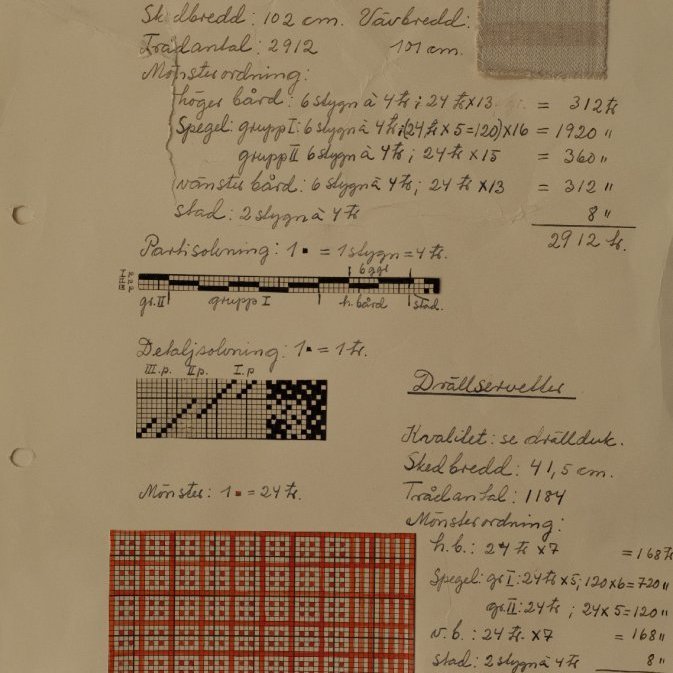 Skedbredd: 102 cm. Vävbredd:
Trådantal: 2912 101 cm.
Mönsterordning:
höger bård: 6 stygn à 4 tr; 24 tr x 13 = 312 tr
Spegel: grupp I: 6 stygn à 4 tr; (24 tr x 5 = 120) x 16 = 1920 "
grupp II 6 stygn à 4 tr; 24 tr x 15 = 360 "
vänster bård: 6 stygn à 4 tr; 24 tr x 13 = 312 "
stad: 2 stygn à 4 tr 8 "
2912 tr.
Partisolvning: 1 ▪ = 1 stygn = 4 tr.
I p
II p
III p
6 ggr
gr. II grupp I h. bård stad.
Detaljsolvning: 1 ▪ = 1 tr.
III. p. II p. I. p
Drällservetter
Kvalitet: se drällduk.
Skedbredd: 41,5 cm.
Trådantal: 1184
Mönster: 1 ▪ = 24 tr.
Mönsterordning:
h. b.: 24 tr x 7 = 168 tr
Spegel: gr I: 24 tr x 5, 120 x 6 = 720 "
gr. II: 24 tr ; 24 x 5 = 120 "
v. b.: 24 tr. x 7 = 168 "
stad: 2 stygn à 4 tr 8 "